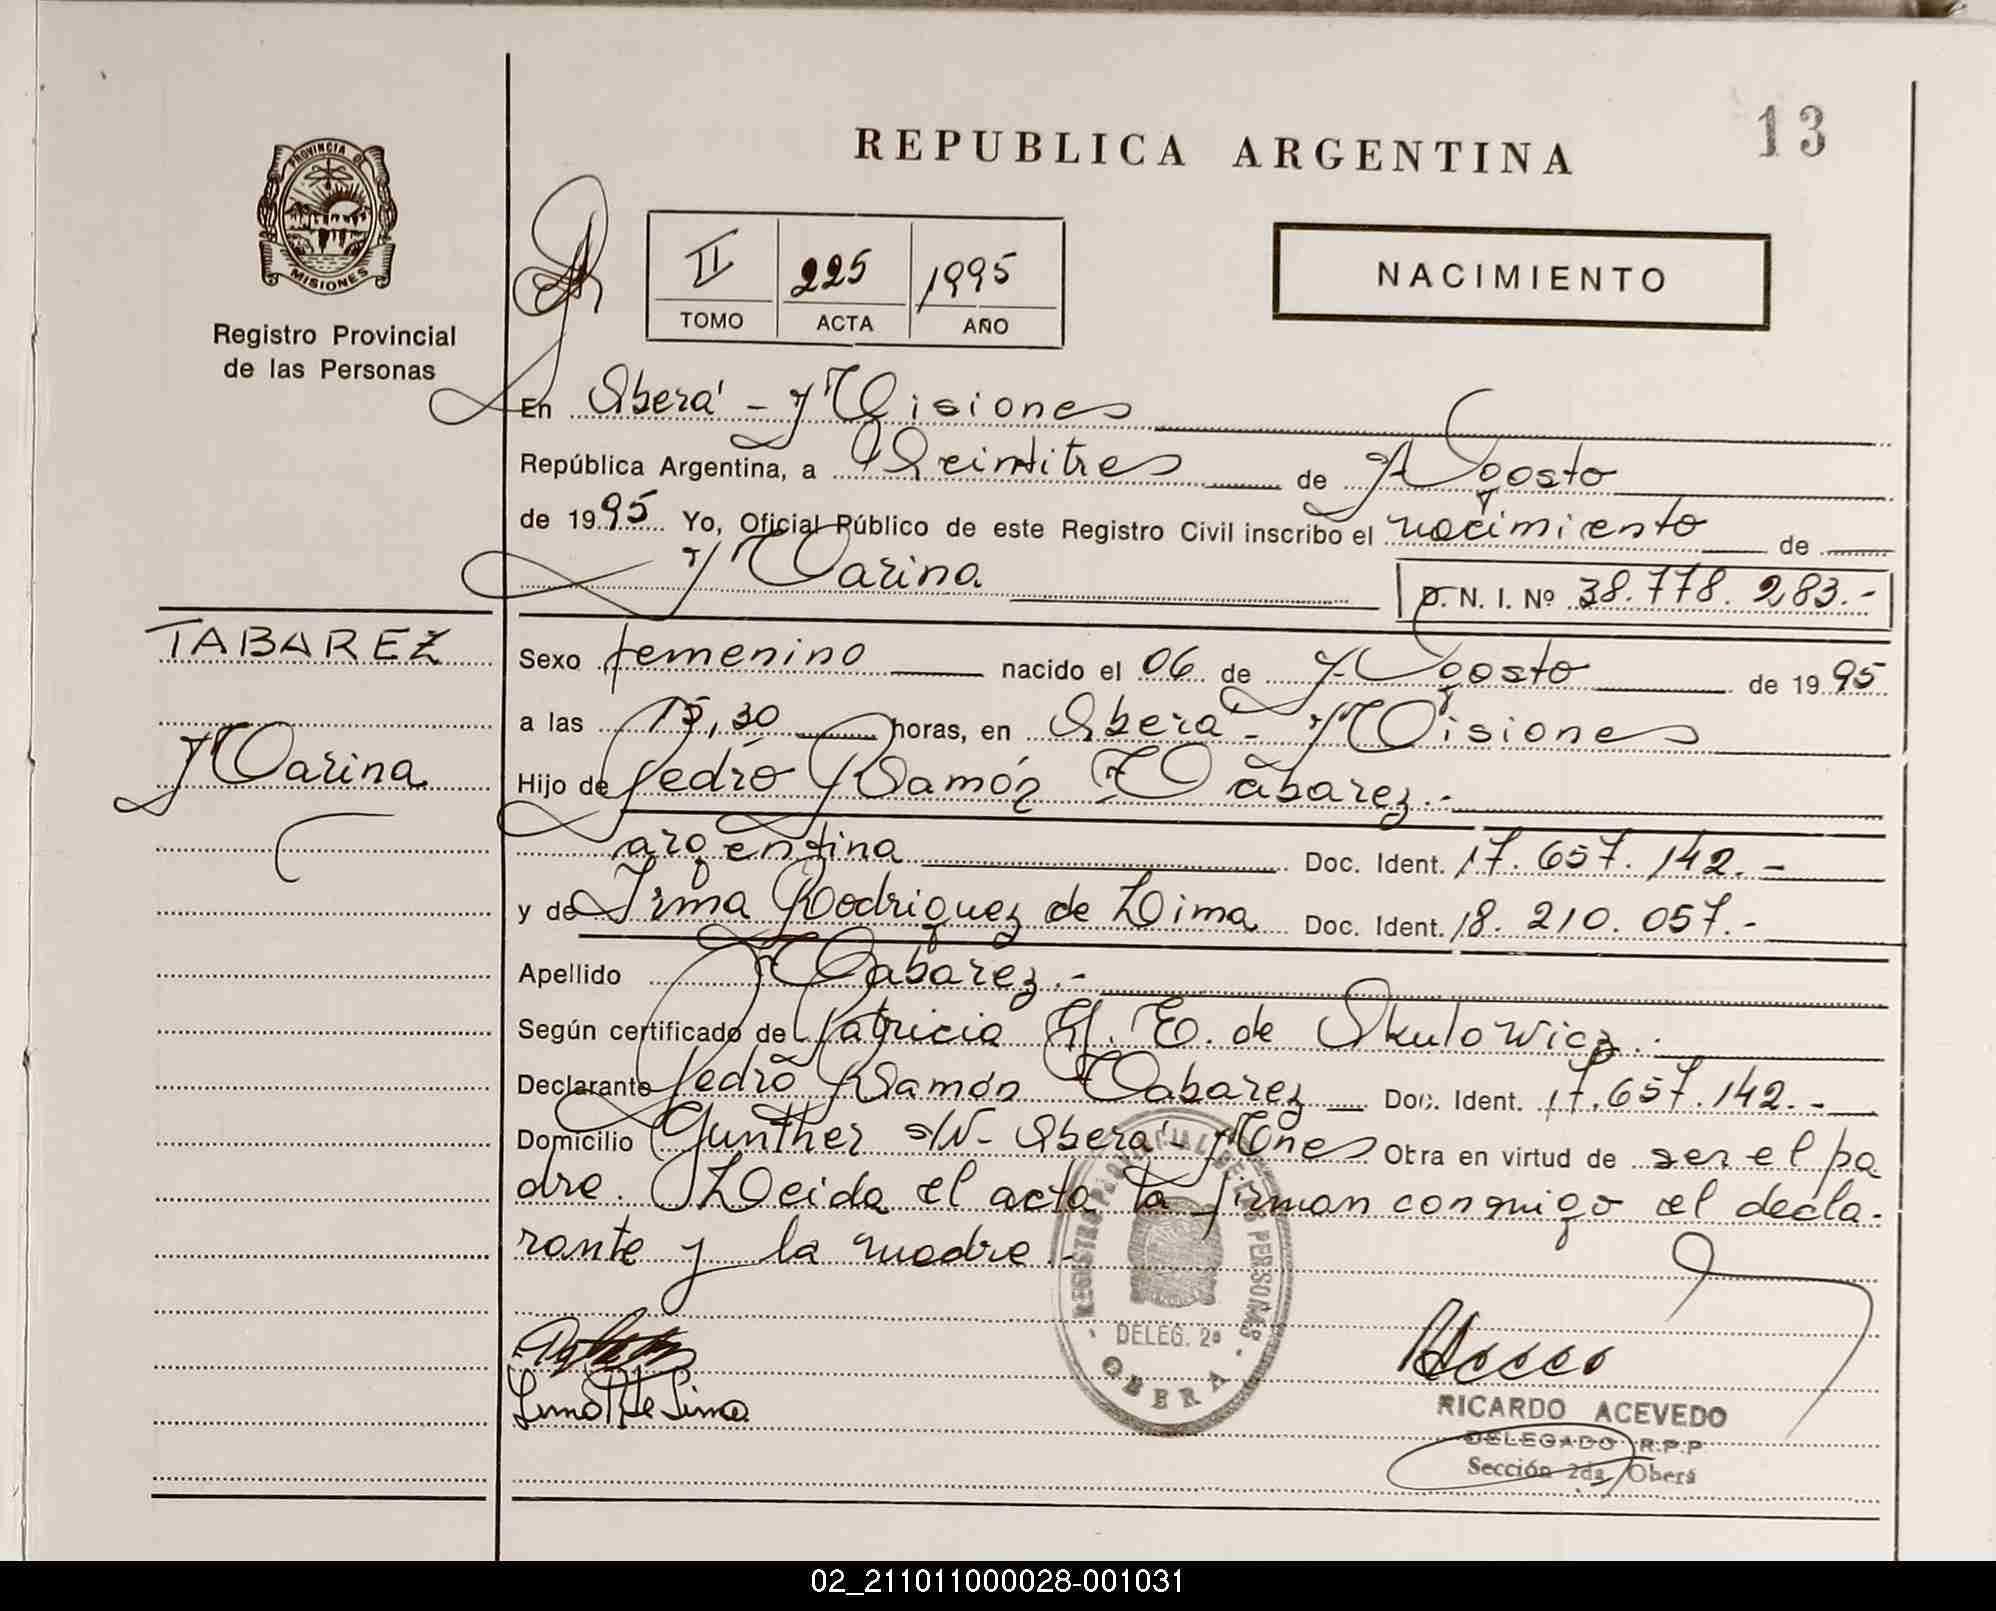 13
REPUBLICA ARGENTINA
PROVINCIA DE
MISIONES
Registro Provincial
de las Personas
II 225 1995
TOMO ACTA AÑO
NACIMIENTO
En Oberá - Misiones
República Argentina, a Veintitres de Agosto
de 1995 Yo, Oficial Público de este Registro Civil inscribo el nacimiento de
Marina D. N. I. Nº 38.778.283.-
TABAREZ
Marina
Sexo femenino nacido el 06 de Agosto de 1995
a las 15,30 horas, en Oberá - Misiones
Hijo de Pedro Ramón Tabarez.-
argentina Doc. Ident. 17.657.142.-
y de Irma Rodriguez de Lima Doc. Ident. 18.210.057.-
Apellido Tabarez.-
Según certificado de Patricia E. de Skulowicz.-
Declarante Pedro Ramón Tabarez Doc. Ident. 17.657.142.-
Domicilio Gunther S/N- Oberá - Mnes Obra en virtud de ser el pa
dre. Leida el acta la firman conmigo el decla-
rante y la madre.-
REGISTRO PROVINCIAL DE LAS PERSONAS
DELEG. 2ª
OBERA
Irma R de Lima
RICARDO ACEVEDO
DELEGADO R.P.P
Sección 2da Oberá
02_211011000028-001031